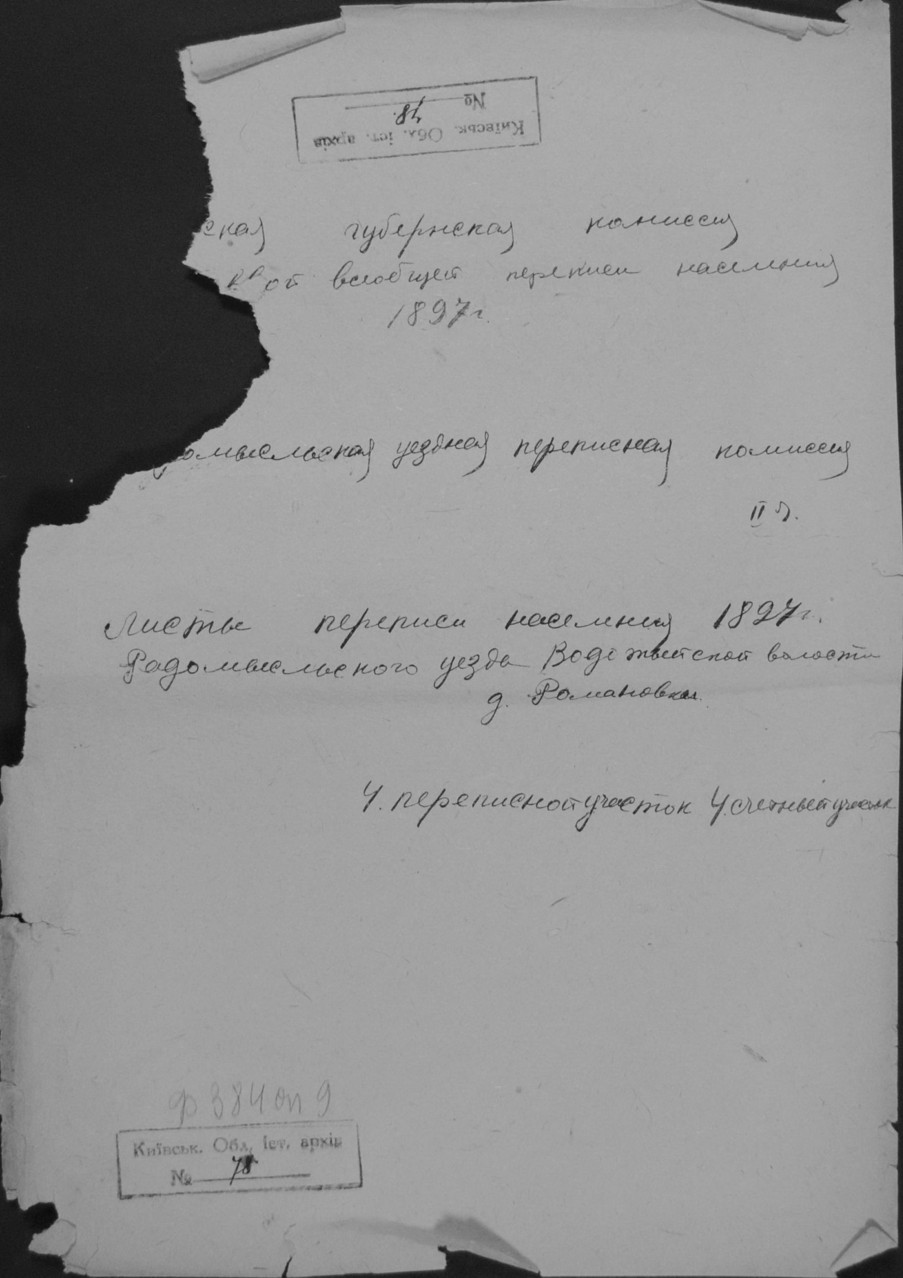 Київськ. Обл. іст. архів
№ 78.
ская губернская комиссия
вой всеобщей переписи населения
1897г.
омысльская уездная переписная комиссия
II
Листы переписи населения 1897г.
Радомысльского уезда волости
д. Романовка
4. переписной участок 4 счетный участок
ф 384 оп 9
Київськ. Обл. іст. архів
№ 78